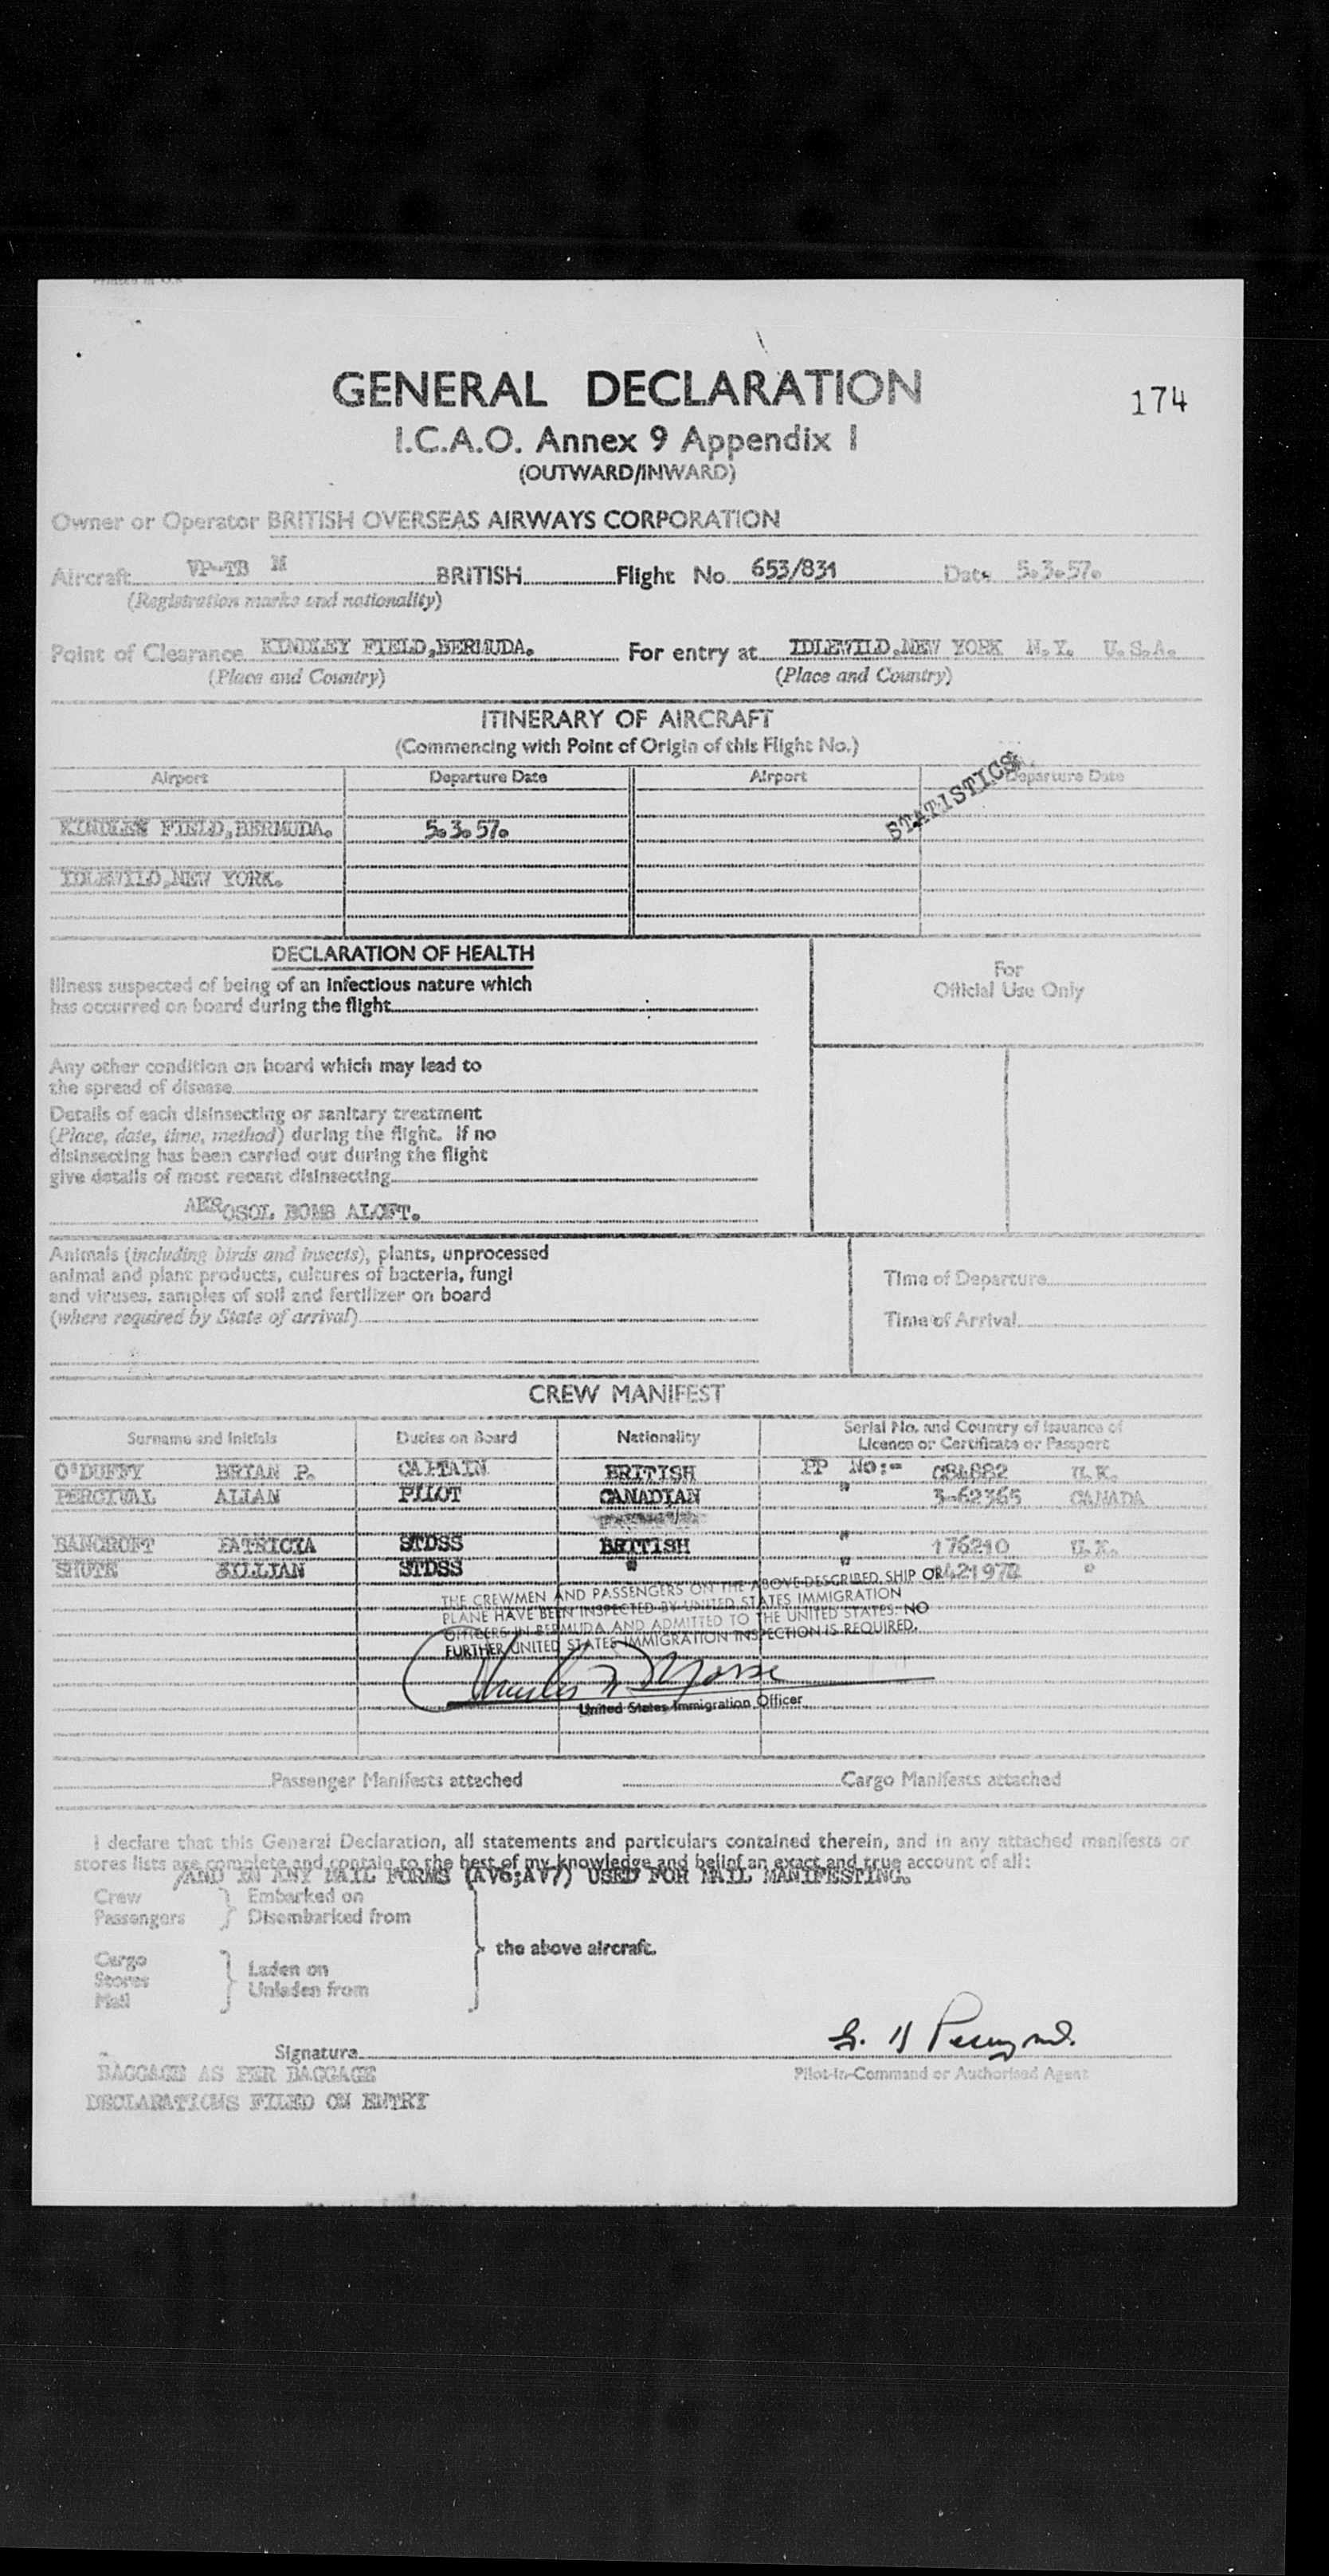 Printed in U.K
GENERAL DECLARATION
174
I.C.A.O. Annex 9 Appendix I
(OUTWARD/INWARD)
Owner or Operator BRITISH OVERSEAS AIRWAYS CORPORATION
Aircraft VP-TB M BRITISH Flight No. 653/831 Date 5.3.57.
(Registration marks and nationality)
Point of Clearance KINDLEY FIELD,BERMUDA. For entry at IDLEWILD,NEW YORK N.Y. U.S.A.
(Place and Country) (Place and Country)
ITINERARY OF AIRCRAFT
(Commencing with Point of Origin of this Flight No.)
Airport Departure Date Airport Departure Date
STATISTICS
KINDLEY FIELD,BERMUDA. 5.3.57.
IDLEWILD,NEW YORK.
DECLARATION OF HEALTH
For
Official Use Only
Illness suspected of being of an infectious nature which
has occurred on board during the flight
Any other condition on board which may lead to
the spread of disease
Details of each disinsecting or sanitary treatment
(Place, date, time, method) during the flight. If no
disinsecting has been carried out during the flight
give details of most recent disinsecting
AEROSOL BOMB ALOFT.
Animals (including birds and insects), plants, unprocessed
animal and plant products, cultures of bacteria, fungi
and viruses, samples of soil and fertilizer on board
(where required by State of arrival)
Time of Departure
Time of Arrival
CREW MANIFEST
Surname and Initials Duties on Board Nationality Serial No. and Country of Issuance of
Licence or Certificate or Passport
O'DUFFY BRIAN P. CAPTAIN BRITISH PP No:- C84882 U.K.
PERCIVAL ALLAN PILOT CANADIAN " 3-62365 CANADA
BANCROFT PATRICIA STDSS BRITISH " 176210 U.K.
SHUTE GILLIAN STDSS " " "
THE CREWMEN AND PASSENGERS ON THE ABOVE-DESCRIBED SHIP OR
PLANE HAVE BEEN INSPECTED BY UNITED STATES IMMIGRATION
OFFICERS IN BERMUDA AND ADMITTED TO THE UNITED STATES. NO
FURTHER UNITED STATES IMMIGRATION INSPECTION IS REQUIRED.
United States Immigration Officer
Passenger Manifests attached Cargo Manifests attached
I declare that this General Declaration, all statements and particulars contained therein, and in any attached manifests or
stores lists are complete and contain to the best of my knowledge and belief an exact and true account of all:
/AND IN ANY MAIL FORMS (AV6;AV7) USED FOR MAIL MANIFESTING.
Crew } Embarked on
Passengers } Disembarked from
the above aircraft.
Cargo
Stores } Laden on
Mail } Unladen from
Signature
Pilot-in-Command or Authorised Agent
BAGGAGE AS PER BAGGAGE
DECLARATIONS FILED ON ENTRY